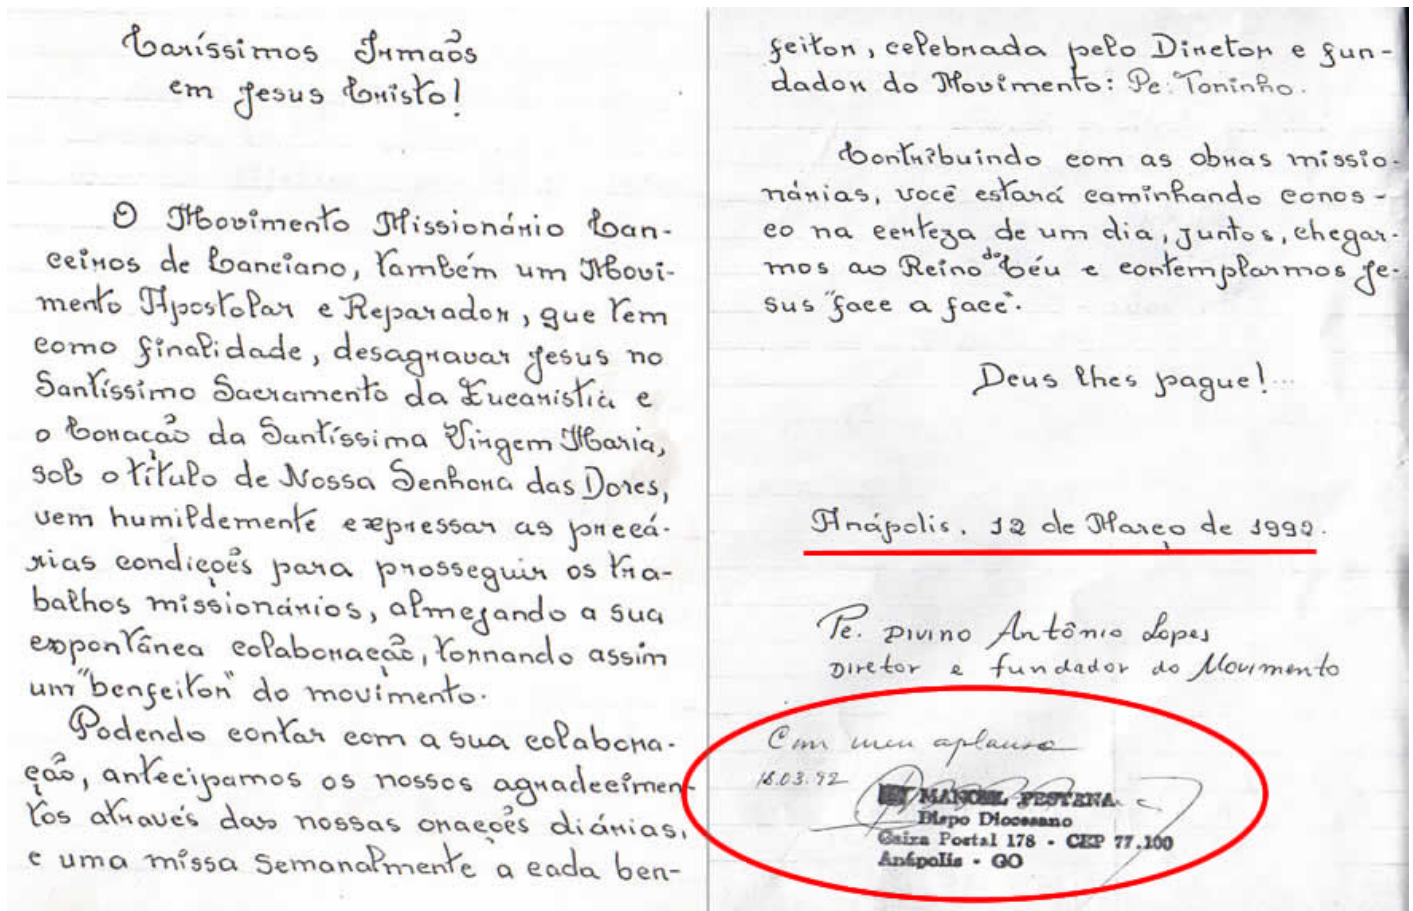 Caríssimos Irmaõs
em Jesus Cristo!
O Movimento Missionário Lan-
ceiros de Lanciano, também um Movi-
mento Apostolar e Reparador, que tem
como finalidade, desagravar Jesus no
Santíssimo Sacramento da Eucaristia e
o Coracão da Santíssima Virgem Maria,
sob o título de Nossa Senhora das Dores,
vem humildemente expressar as precá-
rias condições para prosseguir os tra-
balhos missionários, almejando a sua
expontânea colaboração, tornando assim
um "benfeitor" do movimento.
Podendo contar com a sua colabora-
ção, antecipamos os nossos agradecimen-
tos através das nossas orações diárias,
e uma missa semanalmente a cada ben-
feitor, celebrada pelo Diretor e fun-
dador do Movimento: Pe. Toninho.
Contribuindo com as obras missio-
nárias, você estará caminhando conos-
co na certeza de um dia, juntos, chegar-
mos ao Reino do Céu e contemplarmos Je-
sus "face a face".
Deus lhes pague!...
Anápolis, 12 de Março de 1992.
Pe. Divino Antônio Lopes
Diretor e fundador do Movimento
Com meu aplauso
18.03.92
MANOEL PESTANA
Bispo Diocesano
Caixa Postal 178 - CEP 77.100
Anápolis - GO